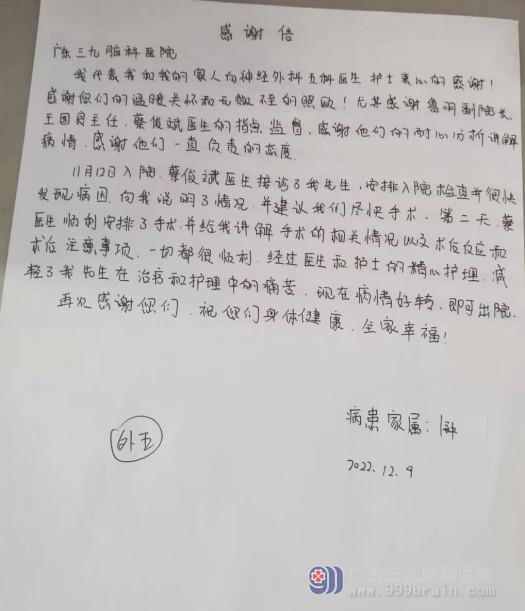 感谢信
广东三九脑科医院
我代表我和我的家人向神经外科五科医生 护士衷心的感谢！
感谢您们的温暖关怀和无微不至的照顾！尤其感谢鲁明副院长、
王国良主任、蔡俊斌医生的指点 监督，感谢他们的耐心分析讲解
病情，感谢他们一直负责的态度.
11月12日入院，蔡俊斌医生接诊了我先生，安排入院检查并很快
发现病因，向我说明了情况，并建议我们尽快手术，第二天，蔡
医生顺利安排了手术，并给我讲解手术的相关情况以及术后反应和
术后注意事项，一切都很顺利，经过医生和护士的精心护理，减
轻了我先生在治疗和护理中的痛苦，现在病情好转，即可出院.
再次感谢您们，祝您们身体健康，全家幸福！
病患家属：
外五
2022.12.9
广东三九脑科医院
www.999brain.com